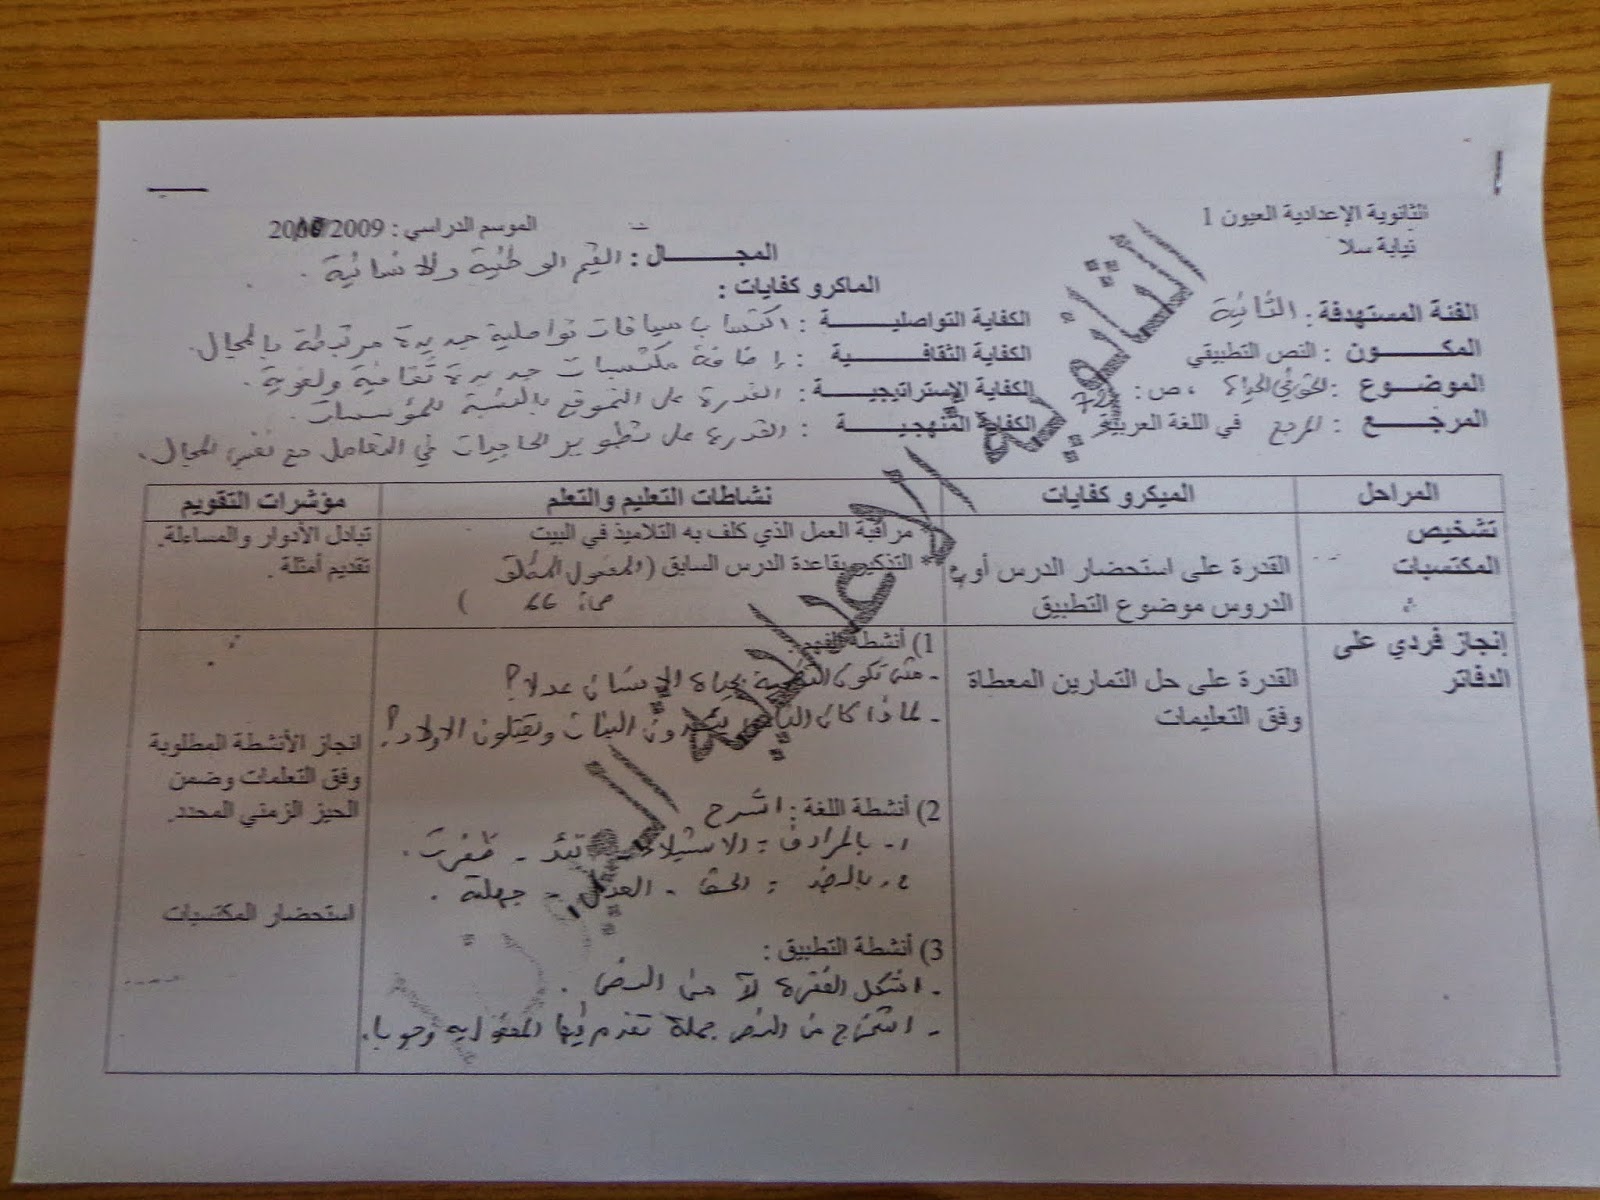 الثانوية الإعدادية العيون 1
نيابة سلا
الموسم الدراسي : 2009
المجــــــال : القيم الوطنية والانسانية .
الماكرو كفايات :
الفئة المستهدفة : الثانية
المكـــــون : النص التطبيقي
الموضــوع : الحق في الحياة ، ص : 72
المرجــــع : المرجع في اللغة العربية
الكفاية التواصليــــة : اكتساب سياقات تواصلية جديدة مرتبطة بالمجال .
الكفاية الثقافــــية : إضافة مكتسبات جديدة ثقافية ولغوية .
الكفاية الإستراتيجيــة : القدرة على التموقع بالنسبة للمؤسسات .
الكفاية المنهجيــــة : القدرة على تطوير الحاجيات في التعامل مع نفس المجال .
المراحل
الميكرو كفايات
نشاطات التعليم والتعلم
مؤشرات التقويم
تشخيص
المكتسبات
القدرة على استحضار الدرس أو
الدروس موضوع التطبيق
* مراقبة العمل الذي كلف به التلاميذ في البيت
* التذكير بقاعدة الدرس السابق ( المفعول المطلق
66 )
تبادل الأدوار والمساءلة.
تقديم أمثلة .
إنجاز فردي على
الدفاتر
القدرة على حل التمارين المعطاة
وفق التعليمات
1) أنشطة الفهم :
- متى تكون التضحية بحياة الإنسان عدلا؟
- لماذا كان الناس يئدون البنات ويقتلون الاولاد ؟
2) أنشطة اللغة : اشرح
1- بالمرادف : الاستيلاء - تئد - ظفرت .
2- بالضد : الحق - العدل - جهلة .
3) أنشطة التطبيق :
- اشكل الفقرة من النص .
- استخرج من النص جملة تقدم فيها المفعول به وجوبا .
انجاز الأنشطة المطلوبة
وفق التعلمات وضمن
الحيز الزمني المحدد.
استحضار المكتسبات
الثانوية الإعدادية العيون